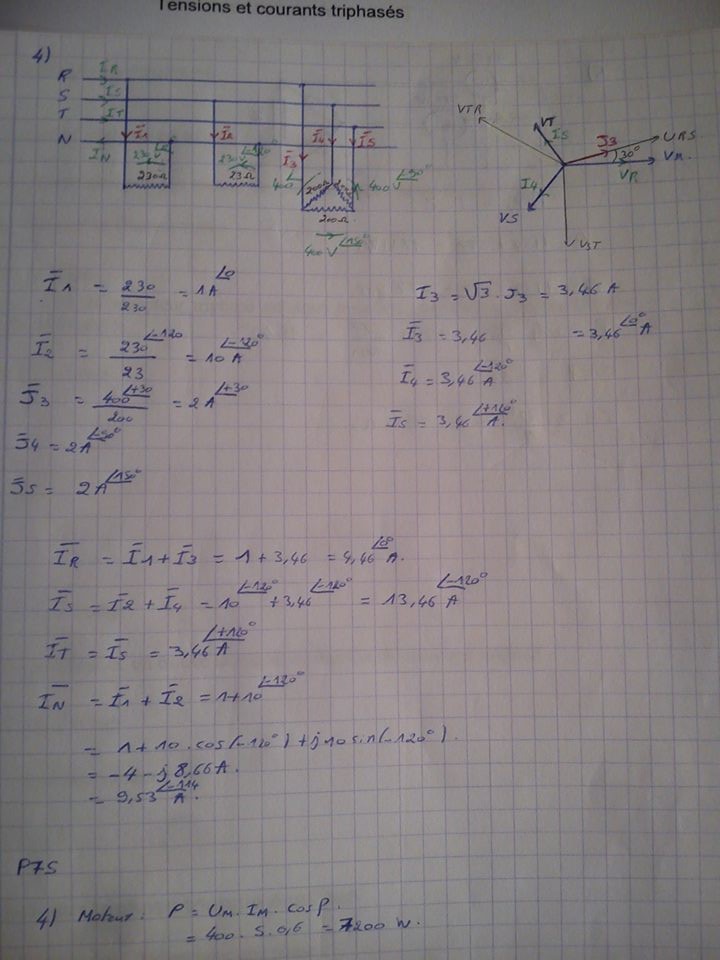 Tensions et courants triphasés
4)
R IR
S IS
T IT
N IN
I1 I2 I3 I4 I5
230V∠0 230V∠-120°
230Ω 23Ω
400 200Ω 400V∠-90°
200Ω
400V∠150°
VTR VT IS J3 URS
30° VR
I4 VS
V3T
Ī1 = 230/230 = 1A∠0
Ī2 = 230∠-120/23 = 10A∠-120°
J̄3 = 400∠+30/200 = 2A∠+30
J̄4 = 2A∠-90°
J̄5 = 2A∠150°
I3 = √3 . J3 = 3,46 A
Ī3 = 3,46 = 3,46∠0° A
Ī4 = 3,46∠-120° A
Ī5 = 3,46∠+120° A.
ĪR = Ī1 + Ī3 = 1 + 3,46 = 4,46∠0° A.
ĪS = Ī2 + Ī4 = 10∠-120° + 3,46∠-120° = 13,46∠-120° A
ĪT = Ī5 = 3,46∠+120° A
ĪN = Ī1 + Ī2 = 1+10∠-120°
= 1 + 10 . cos(-120°) + j10 sin(-120°).
= -4 - j 8,66 A.
= 9,53∠-114 A.
P75
4) Moteur : P = UM. IM. cosρ.
= 400 . 5 . 0,6 = 7200 W.